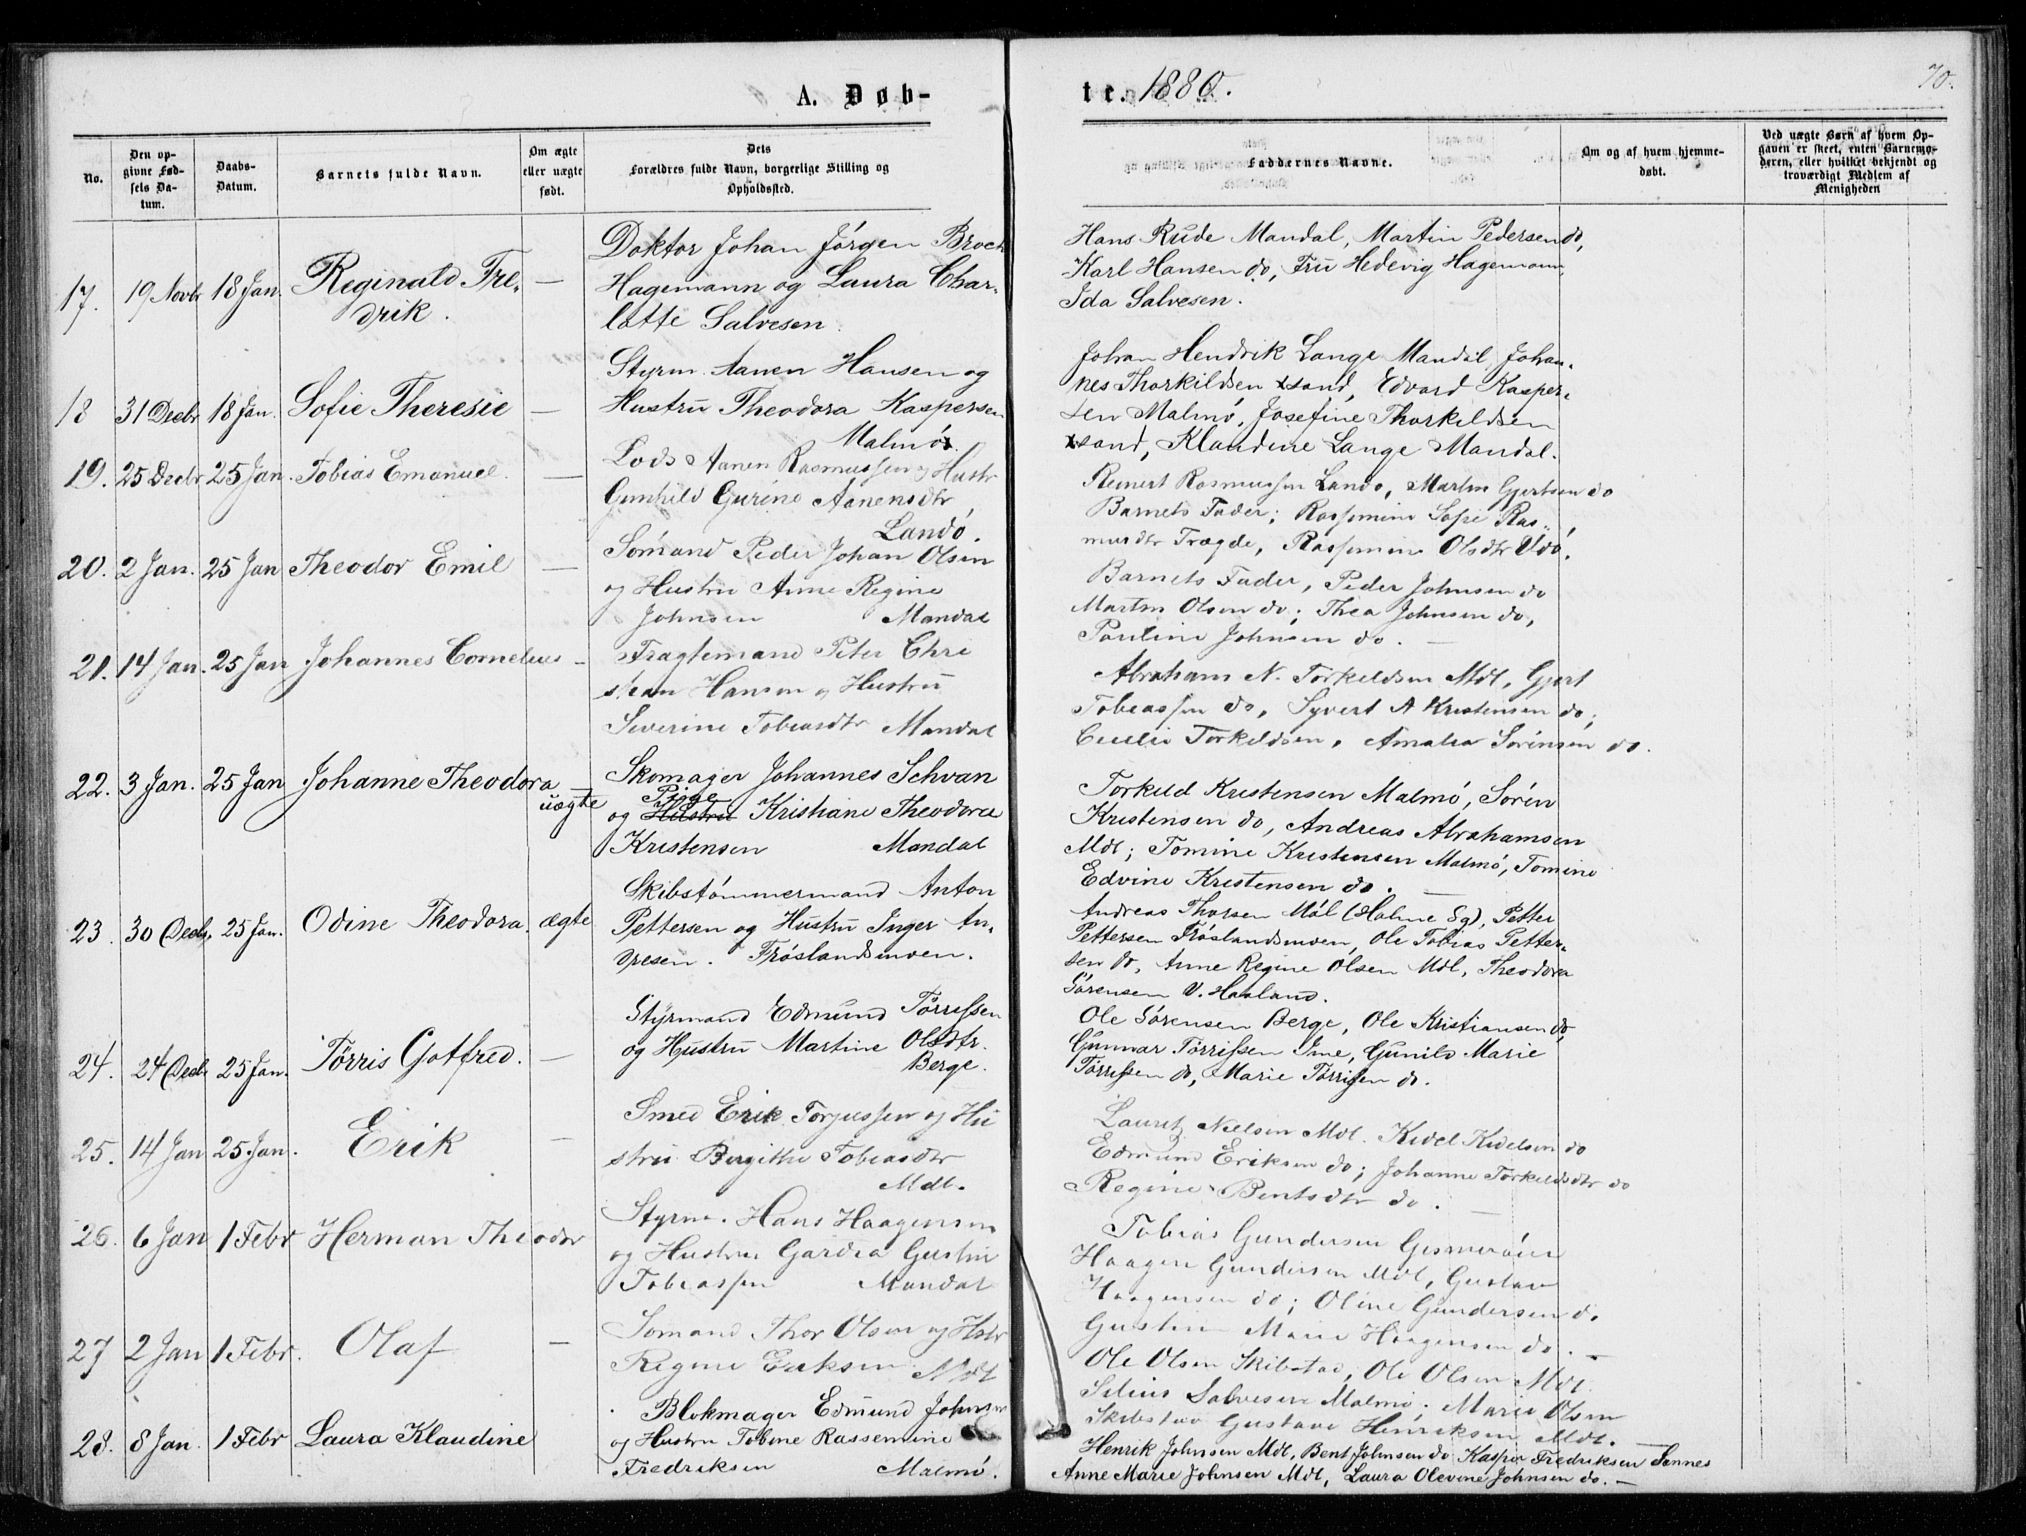 A. Døb-
te. 1880.
70.
No.
Den op-
givne Fød-
sels Da-
tum.
Daabs-
Datum.
Barnets fulde Navn.
Om ægte
eller uægte
født.
Dets
Forældres fulde Navn, borgerlige Stilling og
Opholdssted.
Faddernes Navne.
Om og af hvem hjemme-
døbt.
Ved uægte Børn af hvem Op-
gaven er skeet, enten Barnemo-
deren, eller hvilket bekjendt og
troværdigt Medlem af
Menigheden
17. 19 Novbr 18 Jan. Reginald Fre-
drik. —
Doktor Johan Jörgen Broch
Hagemann og Laura Char-
lotte Salvesen.
Hans Rude Mandal, Martin Pedersen do,
Karl Hansen do, Fru Hedevig Hagemann,
Ida Salvesen.
18 31 Decbr 18 Jan. Sofie Theresie —
Styrm. Aanen Hansen og
Hustru Theodora Kaspersen
Malmö.
Johan Hendrik Lange Mandal, Johan-
nes Thorkildsen Xsand, Edvard Kasper-
sen Malmö, Josefine Thorkildsen
Xsand, Klaudine Lange Mandal.
19. 25 Decbr 25 Jan. Tobias Emanuel —
Lods Aanen Rasmussen og Hustr
Gunhild Gurine Aanensdtr
Landö.
Reinert Rasmussen Landö, Martin Gjertsen do
Barnets Fader; Rassmine Sofie Ras-
musdtr Trægde, Rassmine Olsdtr Udö.
20. 2 Jan. 25 Jan Theodor Emil —
Sömand Peder Johan Olsen
og Hustru Anne Regine
Johnsen Mandal
Barnets Fader, Peder Johnsen do
Martin Olsen do; Thea Johnsen do,
Pauline Johnsen do. —
21. 14 Jan. 25 Jan Johannes Cornelius —
Fragtemand Peter Chri
stian Hansen og Hustru
Severine Tobiasdtr Mandal
Abraham N. Torkildsen Mdl, Gjert
Tobiassen do, Syvert A Kristensen do;
Cecilie Torkildsen, Amalia Sörensen do.
22. 3 Jan. 25 Jan Johanne Theodora —
uægte
Skomager Johannes Schvan
Pige
og Hustru Kristiane Theodora
Kristensen Mandal
Torkild Kristensen Malmö, Sörén
Kristensen do, Andreas Abrahamsen
Mdl; Tomine Kristensen Malmö, Tomine
Edvine Kristensen do. —
23. 30 Decb. 25 Jan. Odine Theodora. ægte
Skibstömmermand Anton
Pettersen og Hustru Inger An-
dresen. Fröslandsmoen.
Andreas Thorsen Möl (Holme Sg), Petter
Pettersen Fröslandsmoen, Ole Tobias Petter-
sen do, Anne Regine Olsen Mdl, Theodora
Sörensen V. Haaland.
24. 24 Decb 25 Jan. Törris Gotfred. —
Styrmand Edmund Törrissen
og Hustru Martine Olsdtr.
Berge.
Ole Sörensen Berge, Ole Kristiansen do,
Gunnar Törrissen Ime, Gunild Marie
Törrissen do, Marie Törrissen do.
25. 14 Jan 25 Jan. Erik —
Smed Erik Torjussen og Hu
stru Birgithe Tobiasdtr
Mdl.
Lauritz Nielsen Mdl. Kidel Kidelsen do
Edmund Eriksen do; Johanne Torkildsdtr do
Regine Bentsdtr do. —
26. 6 Jan 1 Febr Herman Theodor
Styrm. Hans Haagensen
og Hustru Gardea Gustin
Tobiassen Mandal
Tobias Gundersen
Haagen Gundersen Mdl, Gustav
Haagensen do; Oline Gundersen do.
Gustin Marie Haagensen do. —
27 2 Jan 1 Febr. Olaf —
Sömand Thor Olsen og Hstr
Regine Eriksen Mdl
Ole Olsen Skibstad, Ole Olsen Mdl
Salvesen Malmö. Marie Olsen
Skibstad Gustava Henriksen Mdl.
28. 8 Jan. 1 Febr Laura Klaudine
Blokmager Edmund Johnsen
og Hustru Tobine Rassemine
Fredriksen Malmö.
Henrik Johnsen Mdl, Bent Johnsen do Kasper Fredriksen Sennes
Anne Marie Johnsen Mdl, Laura Olevine Johnsen do. —